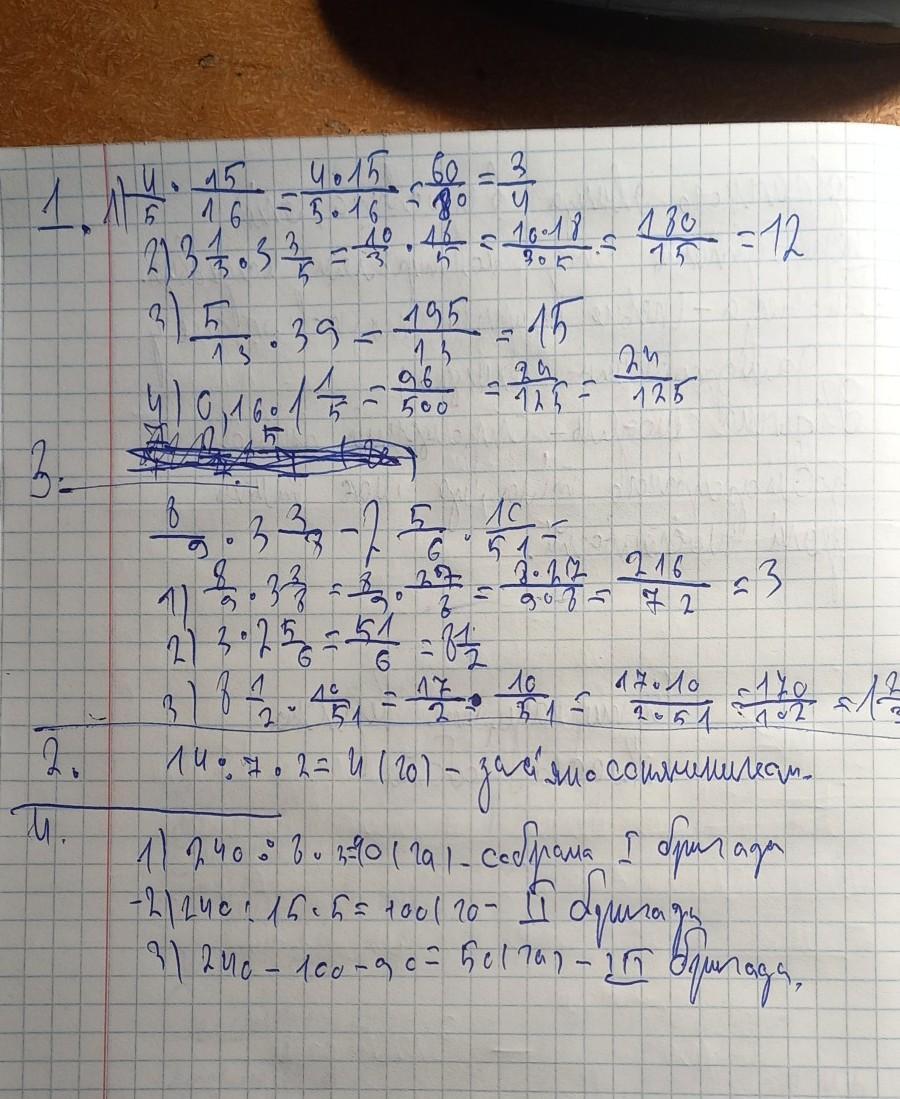 1. 1) 4/5 · 15/16 = 4·15/5·16 = 60/80 = 3/4
2) 3 1/3 · 3 3/5 = 10/3 · 18/5 = 10·18/3·5 = 180/15 = 12
3) 5/13 · 39 = 195/13 = 15
4) 0,16 · 1 1/5 = 96/500 = 24/125 = 24/125
3.
8/9 · 3 3/8 - 2 5/6 · 10/51 =
1) 8/9 · 3 3/8 = 8/9 · 27/8 = 8·27/9·8 = 216/72 = 3
2) 3 · 2 5/6 = 51/6 = 8 1/2
3) 8 1/2 · 10/51 = 17/2 · 10/51 = 17·10/2·51 = 170/102 = 1 2/3
2. 14 : 7 · 2 = 4 (га) - засіяно соняшником.
4.
1) 240 : 8 · 3 = 90 (га) - собрала I бригада
2) 240 : 15 · 5 = 100 (га - II бригада
3) 240 - 100 - 90 = 50 (га) - III бригада.